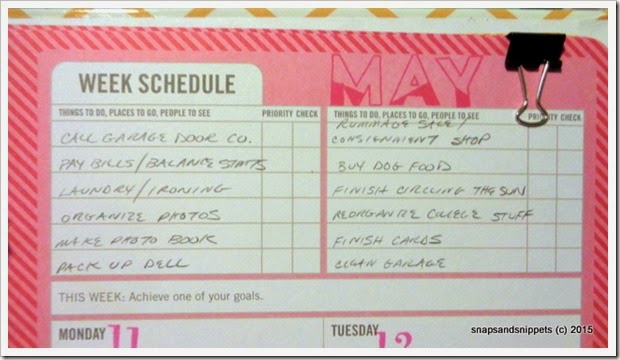 WEEK SCHEDULE
MAY
THINGS TO DO, PLACES TO GO, PEOPLE TO SEE PRIORITY CHECK
CALL GARAGE DOOR CO.
PAY BILLS/BALANCE STMTS
LAUNDRY/IRONING
ORGANIZE PHOTOS
MAKE PHOTO BOOK
PACK UP DELL
THINGS TO DO, PLACES TO GO, PEOPLE TO SEE PRIORITY CHECK
RUMMAGE SALE/
CONSIGNMENT SHOP
BUY DOG FOOD
FINISH CIRCLING THE SUN
REORGANIZE COLLEGE STUFF
FINISH CARDS
CLEAN GARAGE
THIS WEEK: Achieve one of your goals.
MONDAY 11
TUESDAY 12
snapsandsnippets (c) 2015